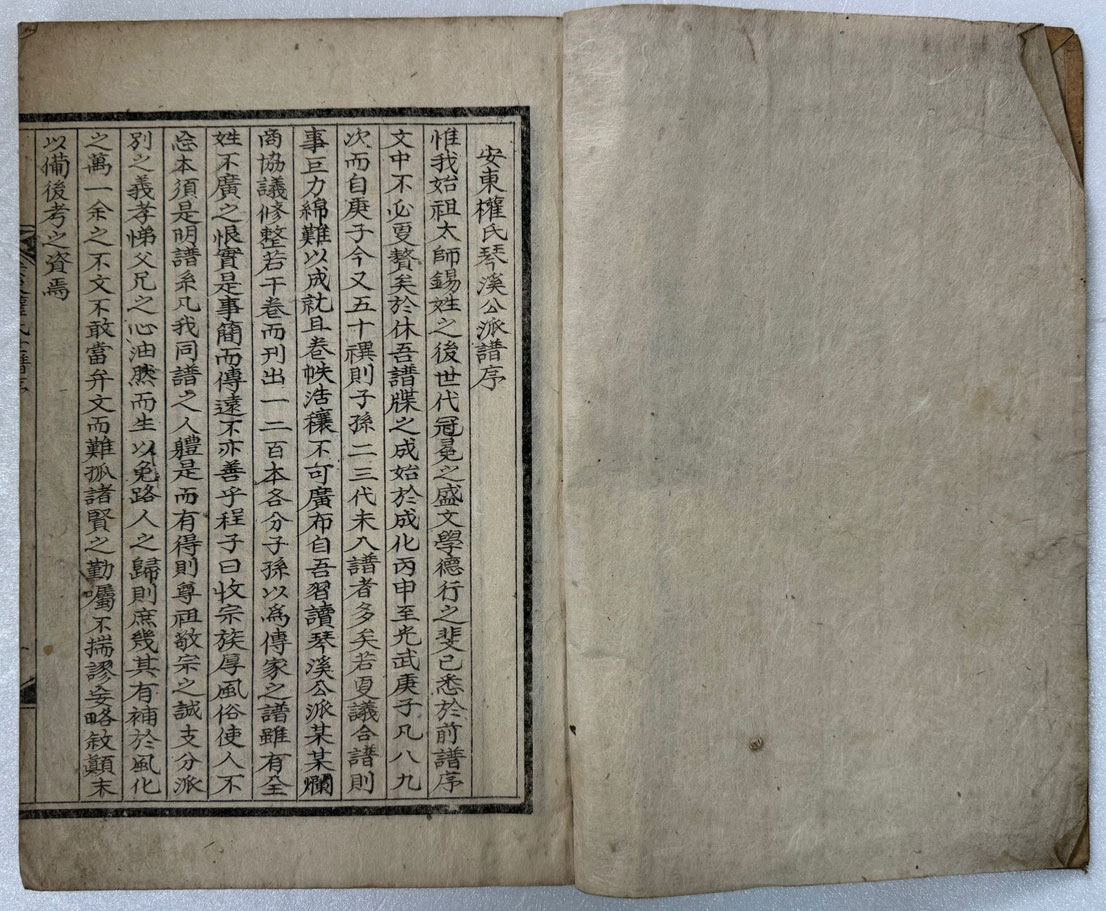 安東權氏琴溪公派譜序
惟我始祖太師錫姓之後世代冠冕之盛文學德行之斐已悉於前譜序
文中不必更贅矣於休吾譜牒之成始於成化丙申至光武庚子凡八九
次而自庚子今又五十禩則子孫二三代未入譜者多矣若更議合譜則
事巨力綿難以成就且卷帙浩穰不可廣布自吾習讀琴溪公派某某爛
商協議修整若干卷而刊出一二百本各分子孫以爲傳家之譜雖有全
姓不廣之恨實是事簡而傳遠不亦善乎程子曰收宗族厚風俗使人不
忘本須是明譜系凡我同譜之人軆是而有得則尊祖敬宗之誠支分派
別之義孝悌父兄之心油然而生以免路人之歸則庶幾其有補於風化
之萬一余之不文不敢當弁文而難孤諸賢之勤囑不揣謬妄略敘顚末
以備後考之資焉